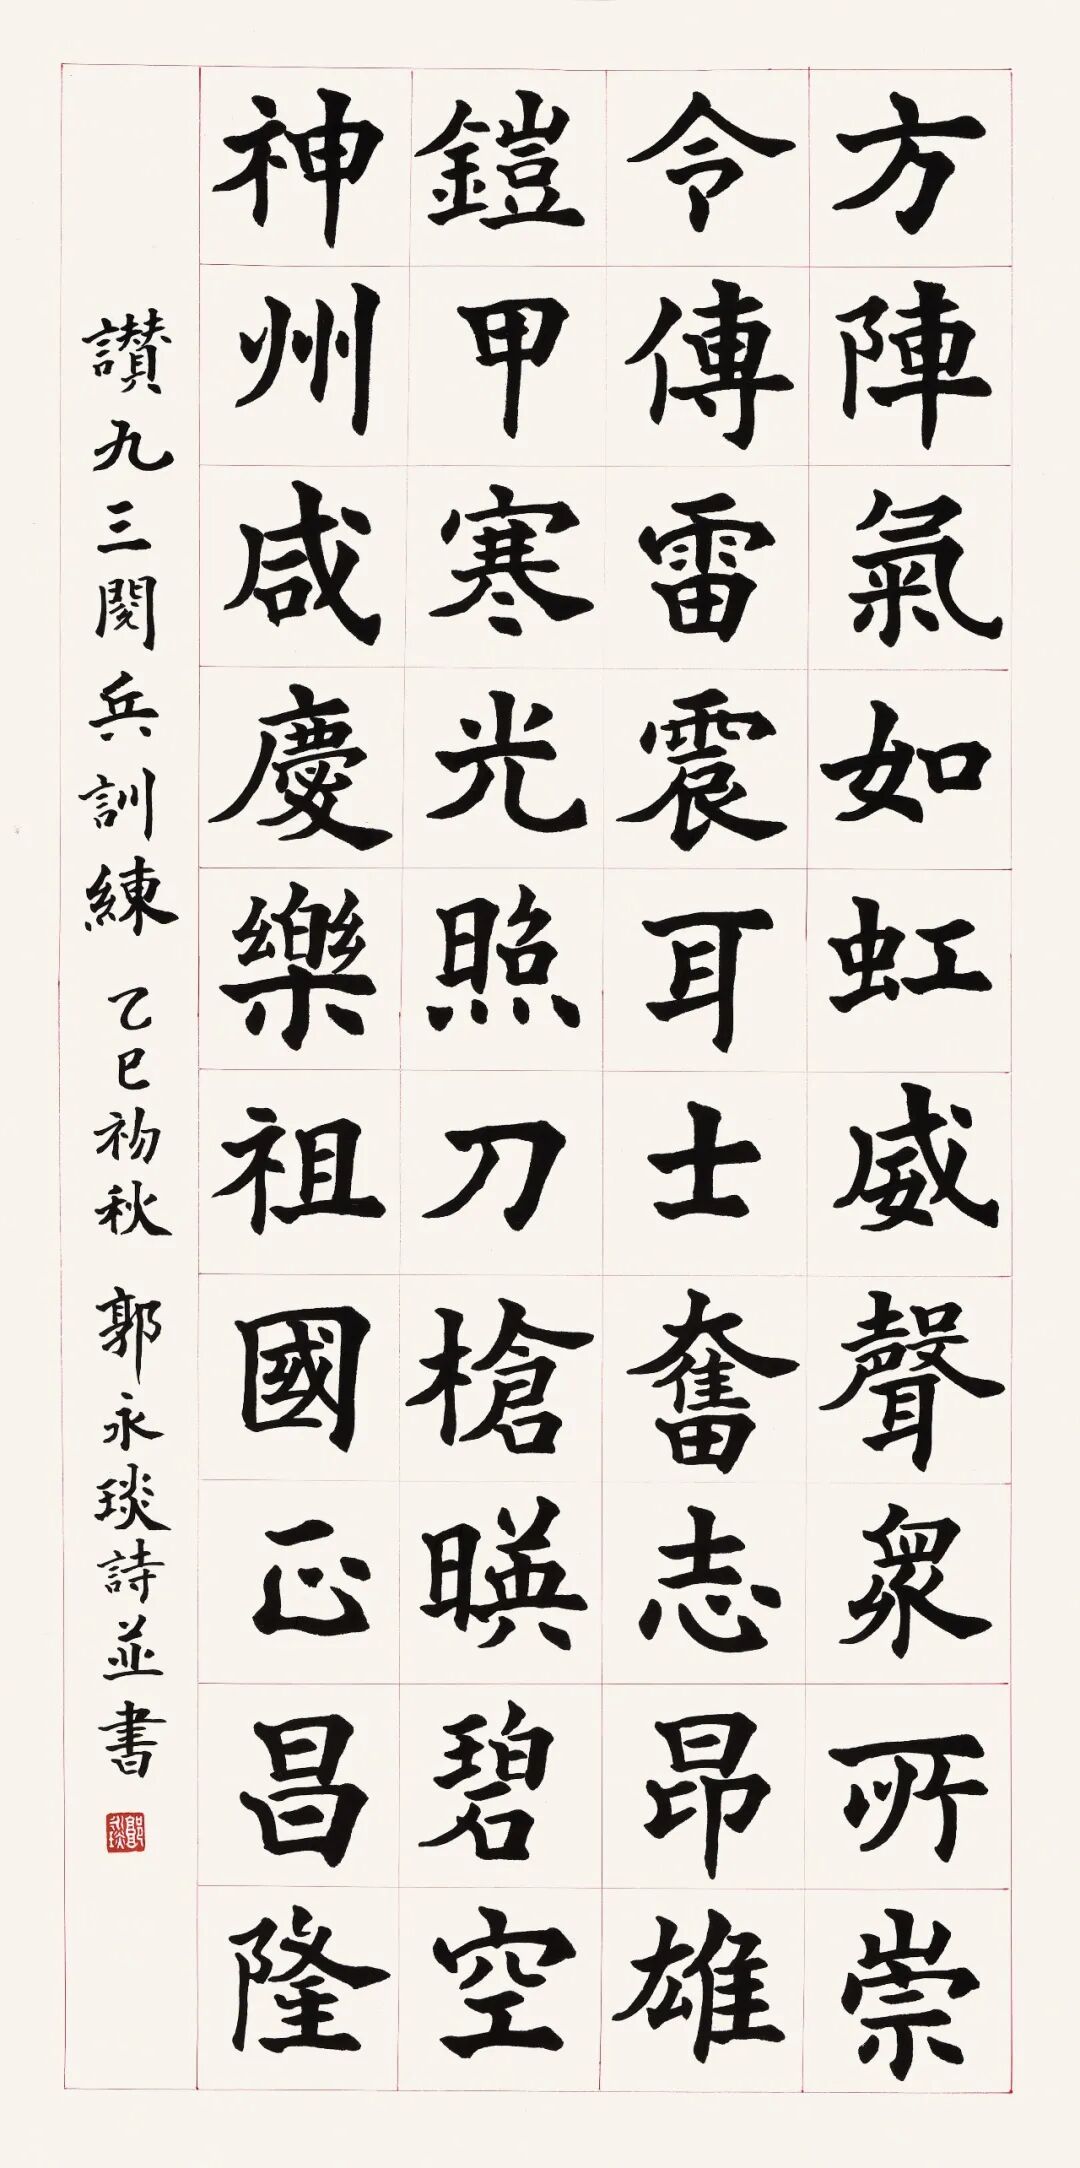 方陣氣如虹威聲眾所崇
令傳雷震耳士奮志昂雄
鎧甲寒光照刀槍暎碧空
神州咸慶樂祖國正昌隆
讚九三閱兵訓練 乙巳初秋 郭永琰詩並書
郭永琰